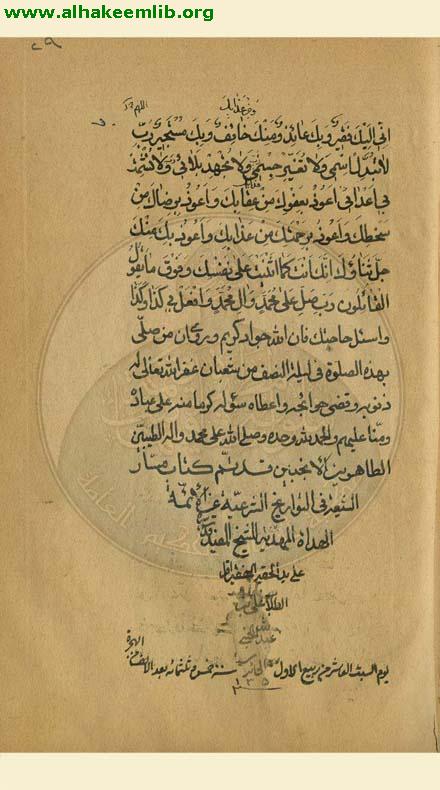 www.alhakeemlib.org
٢٩
اللهم
اني اليك فقير وبك عائذ ومنك خائف وبك مستجير رب
لا تبدل اسمي ولا تغير جسمي ولا تجهد بلائي ولا تشمت
بي اعدائي اعوذ بعفوك من عقابك واعوذ برضاك من
سخطك واعوذ برحمتك من عذابك واعوذ بك منك
جل ثناؤك انك انت كما اثنيت على نفسك وفوق ما يقول
القائلون رب صل على محمد وال محمد وافعل بي كذا وكذا
واسئل حاجتك فان الله جواد كريم وروي ان من صلى
بهذه الصلوة في ليلة النصف من شعبان غفر الله تعالى له
ذنوبه وقضى حوائجه واعطاه سؤله كرما منه على عباده
ومنا عليهم والحمد لله وحده وصلى الله على محمد واله الطيبين
الطاهرين الانجبين قد تم كتاب مسار
الشيعة في التواريخ الشرعية الائمة
الهداة المهدية للشيخ المفيد
على يد الحقير الفقير اقل
الطلاب
يوم السبت العاشر من ربيع الاول سنة خمسة ثلثمائة بعد الالف من الهجرة
١٣٠٥